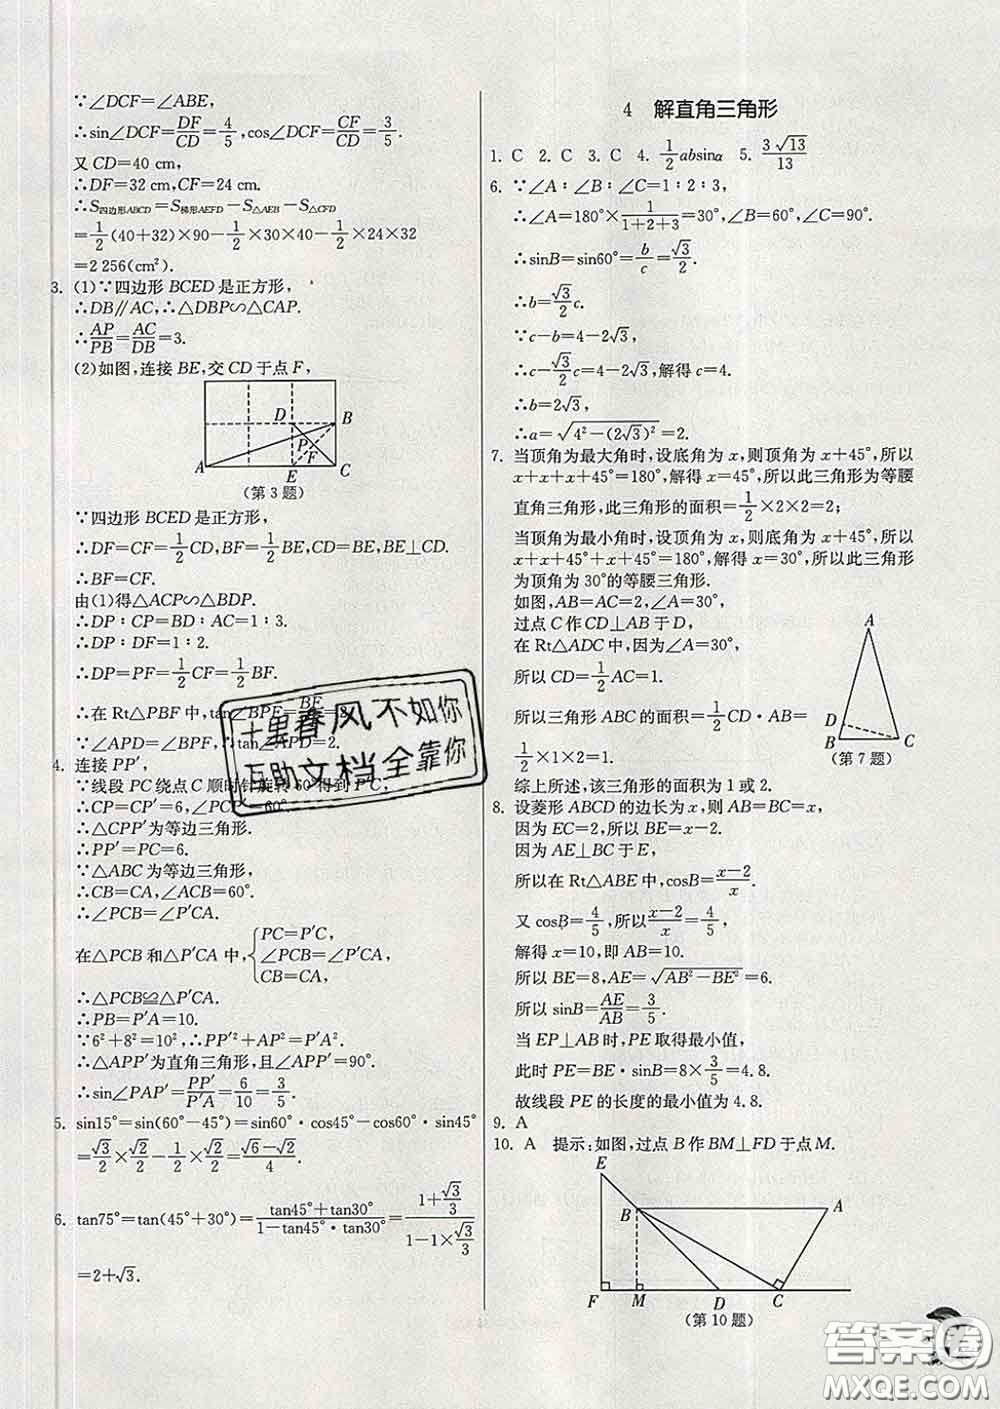 ∵∠DCF=∠ABE,
∴sin∠DCF=DF/CD=4/5,cos∠DCF=CF/CD=3/5.
又CD=40 cm,
∴DF=32 cm,CF=24 cm.
∴S四边形ABCD=S梯形AEFD-S△AEB-S△CFD
=1/2(40+32)×90-1/2×30×40-1/2×24×32
=2 256(cm²).
3. (1)∵四边形BCED是正方形,
∴DB∥AC,∴△DBP∽△CAP.
∴AP/PB=AC/DB=3.
(2)如图,连接BE,交CD于点F,
D
B
P
F
A
E
C
(第3题)
∵四边形BCED是正方形,
∴DF=CF=1/2CD,BF=1/2BE,CD=BE,BE⊥CD.
∴BF=CF.
由(1)得△ACP∽△BDP.
∴DP∶CP=BD∶AC=1∶3.
∴DP∶DF=1∶2.
∴DP=PF=1/2CF=1/2BF.
∴在Rt△PBF中,tan∠BPF=
∵∠APD=∠BPF,∴tan∠APD=2.
4. 连接PP′,
∵线段PC绕点C顺时针旋转60°得到P′C,
∴CP=CP′=6,∠PCP′=60°
∴△CPP′为等边三角形.
∴PP′=PC=6.
∵△ABC为等边三角形,
∴CB=CA,∠ACB=60°.
∴∠PCB=∠P′CA.
在△PCB和△P′CA中,{PC=P′C,
∠PCB=∠P′CA,
CB=CA,
∴△PCB≌△P′CA.
∴PB=P′A=10.
∵6²+8²=10²,∴PP′²+AP²=P′A².
∴△APP′为直角三角形,且∠APP′=90°.
∴sin∠PAP′=PP′/P′A=6/10=3/5.
5. sin15°=sin(60°-45°)=sin60°·cos45°-cos60°·sin45°
=√3/2×√2/2-1/2×√2/2=(√6-√2)/4.
6. tan75°=tan(45°+30°)=(tan45°+tan30°)/(1-tan45°·tan30°)=(1+√3/3)/(1-1×√3/3)
=2+√3.
十里春风不如你
互助文档全靠你
4 解直角三角形
1. C 2. C 3. C 4. 1/2absinα 5. 3√13/13
6. ∵∠A∶∠B∶∠C=1∶2∶3,
∴∠A=180°×1/(1+2+3)=30°,∠B=60°,∠C=90°.
∴sinB=sin60°=b/c=√3/2.
∴b=√3/2c.
∵c-b=4-2√3,
∴c-√3/2c=4-2√3,解得c=4.
∴b=2√3,
∴a=√(4²-(2√3)²)=2.
7. 当顶角为最大角时,设底角为x,则顶角为x+45°,所以
x+x+x+45°=180°,解得x=45°,所以此三角形为等腰
直角三角形,此三角形的面积=1/2×2×2=2;
当顶角为最小角时,设顶角为x,则底角为x+45°,所以
x+x+45°+x+45°=180°,解得x=30°,所以此三角形
为顶角为30°的等腰三角形.
如图,AB=AC=2,∠A=30°,
过点C作CD⊥AB于D,
在Rt△ADC中,因为∠A=30°,
所以CD=1/2AC=1.
所以三角形ABC的面积=1/2CD·AB=
1/2×1×2=1.
A
D
B
C
(第7题)
综上所述,该三角形的面积为1或2.
8. 设菱形ABCD的边长为x,则AB=BC=x,
因为EC=2,所以BE=x-2.
因为AE⊥BC于E,
所以在Rt△ABE中,cosB=(x-2)/x.
又cosB=4/5,所以(x-2)/x=4/5,
解得x=10,即AB=10.
所以BE=8,AE=√(AB²-BE²)=6.
所以sinB=AE/AB=3/5.
当EP⊥AB时,PE取得最小值,
此时PE=BE·sinB=8×3/5=4.8.
故线段PE的长度的最小值为4.8.
9. A
10. A 提示:如图,过点B作BM⊥FD于点M.
E
B
A
F
M
D
C
(第10题)
答案圈
MXQE.COM